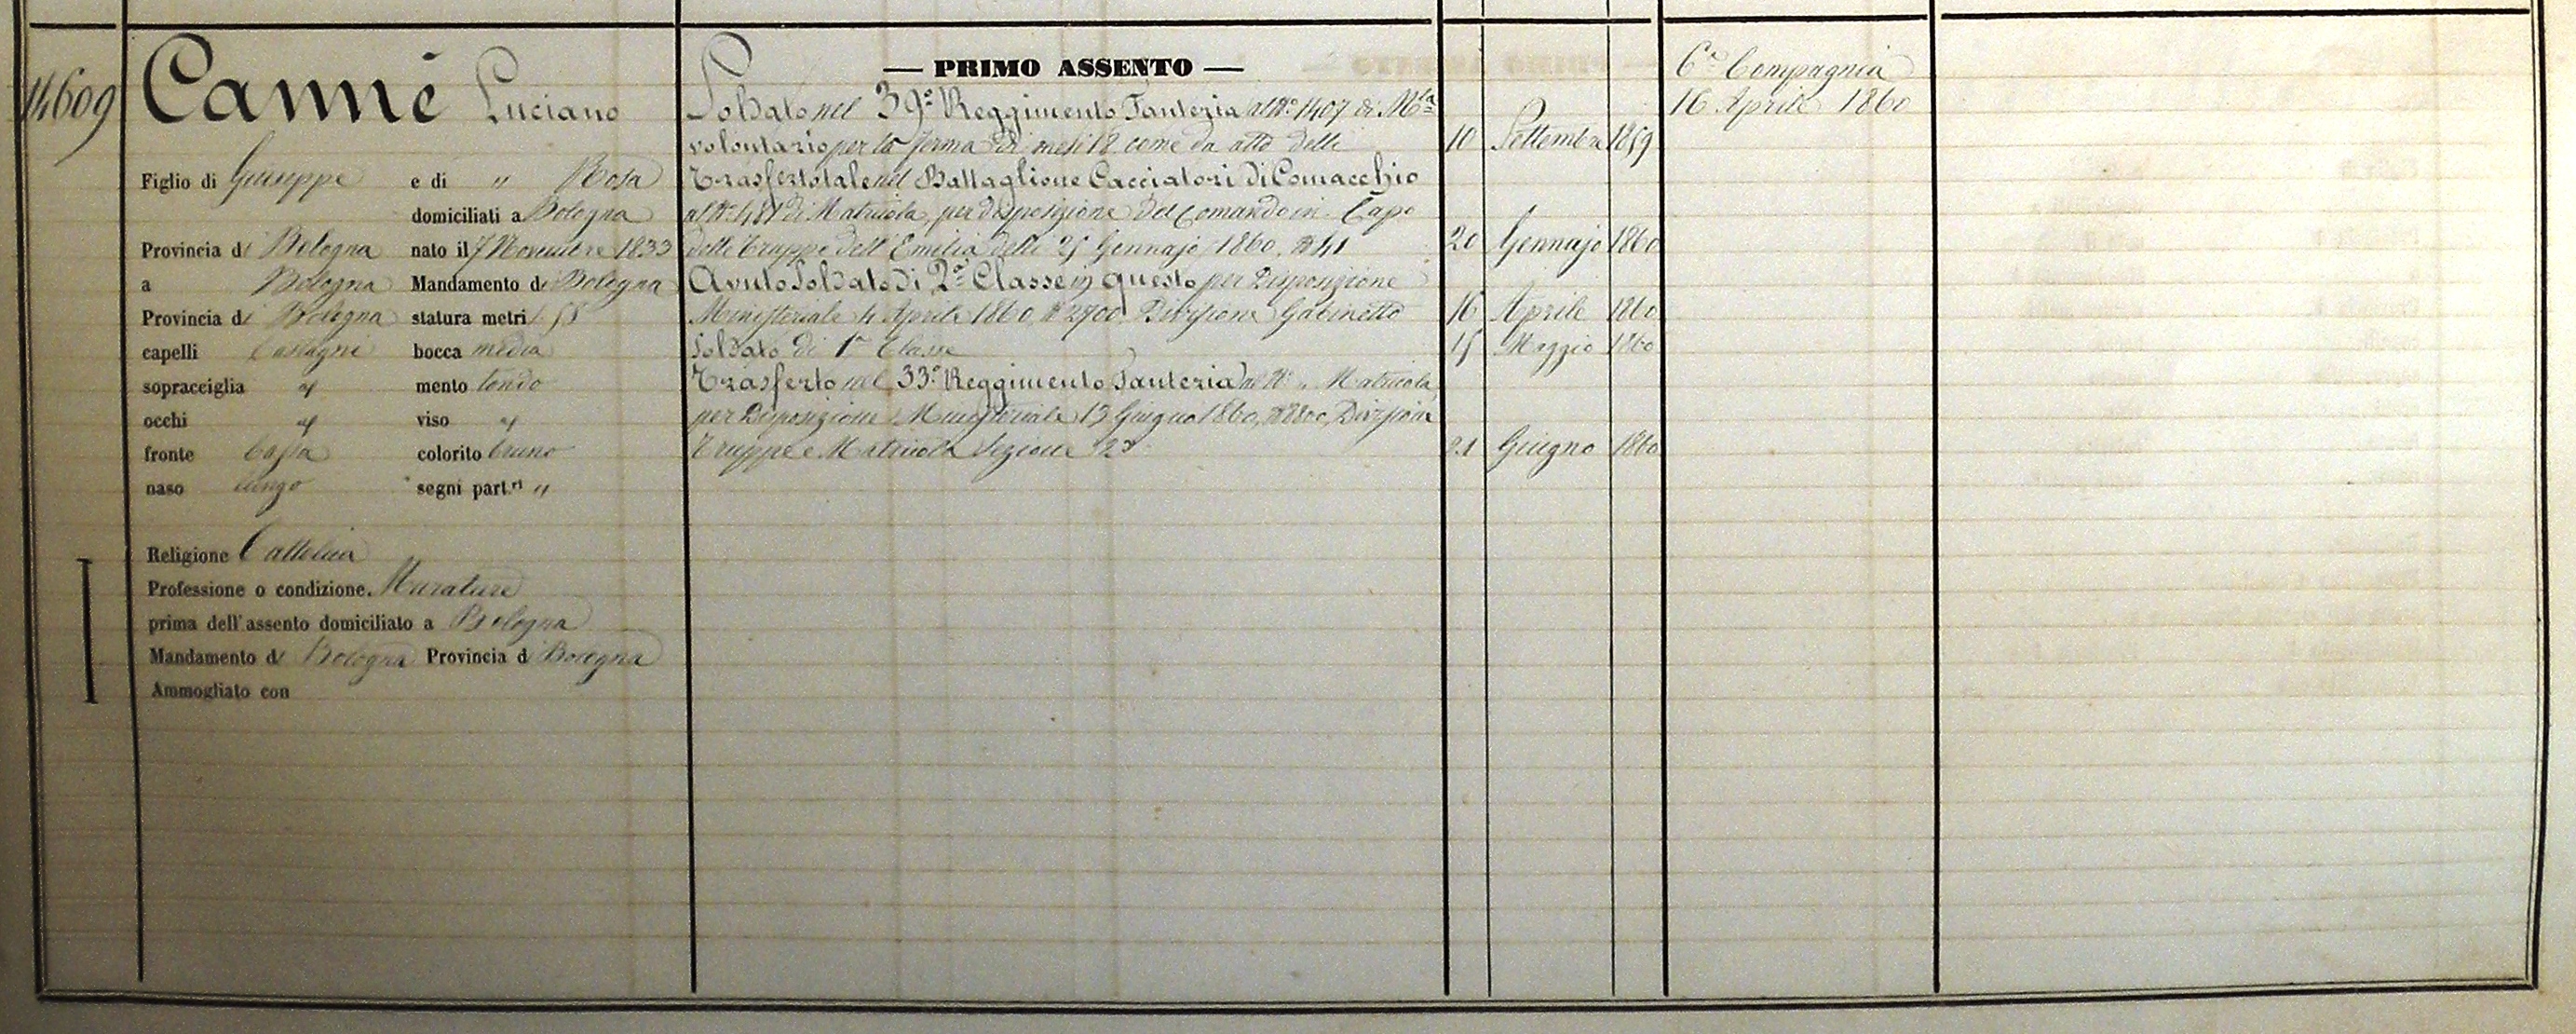 14609
Canné Luciano
Figlio di Giuseppe e di " Rosa
domiciliati a Bologna
Provincia di Bologna nato il 7 Novembre 1833
a Bologna Mandamento di Bologna
Provincia di Bologna statura metri 1. 55
capelli Castagni bocca media
sopracciglia af mento tondo
occhi af viso af
fronte bassa colorito bruno
naso lungo segni part.ri "
Religione Cattolica
Professione o condizione. Muratore
prima dell'assento domiciliato a Bologna
Mandamento di Bologna Provincia di Bologna
Ammogliato con
— PRIMO ASSENTO —
Soldato nel 39° Reggimento Fanteria al N° 1407 di Mla
volontario per la ferma di mesi 18 come da atto delli 10 Settembre 1859
Trasferto tale nel Battaglione Cacciatori di Comacchio
al N° 481 di Matricola, per disposizione del Comando in Capo
delle Truppe dell'Emilia delli 25 Gennajo 1860. N° 41 20 Gennajo 1860
Avuto Soldato di 2a Classe in questo per Disposizione
Ministeriale 4 Aprile 1860 N° 2900. Divisione Gabinetto 16 Aprile 1860
Soldato di 1a Classe 15 Maggio 1860
Trasferto nel 33° Reggimento Fanteria al N° " Matricola
per Disposizione Ministeriale 13 Giugno 1860, N° 8800, Divisione
Truppe e Matricola Sezione 2a 21 Giugno 1860
6a Compagnia
16 Aprile 1860